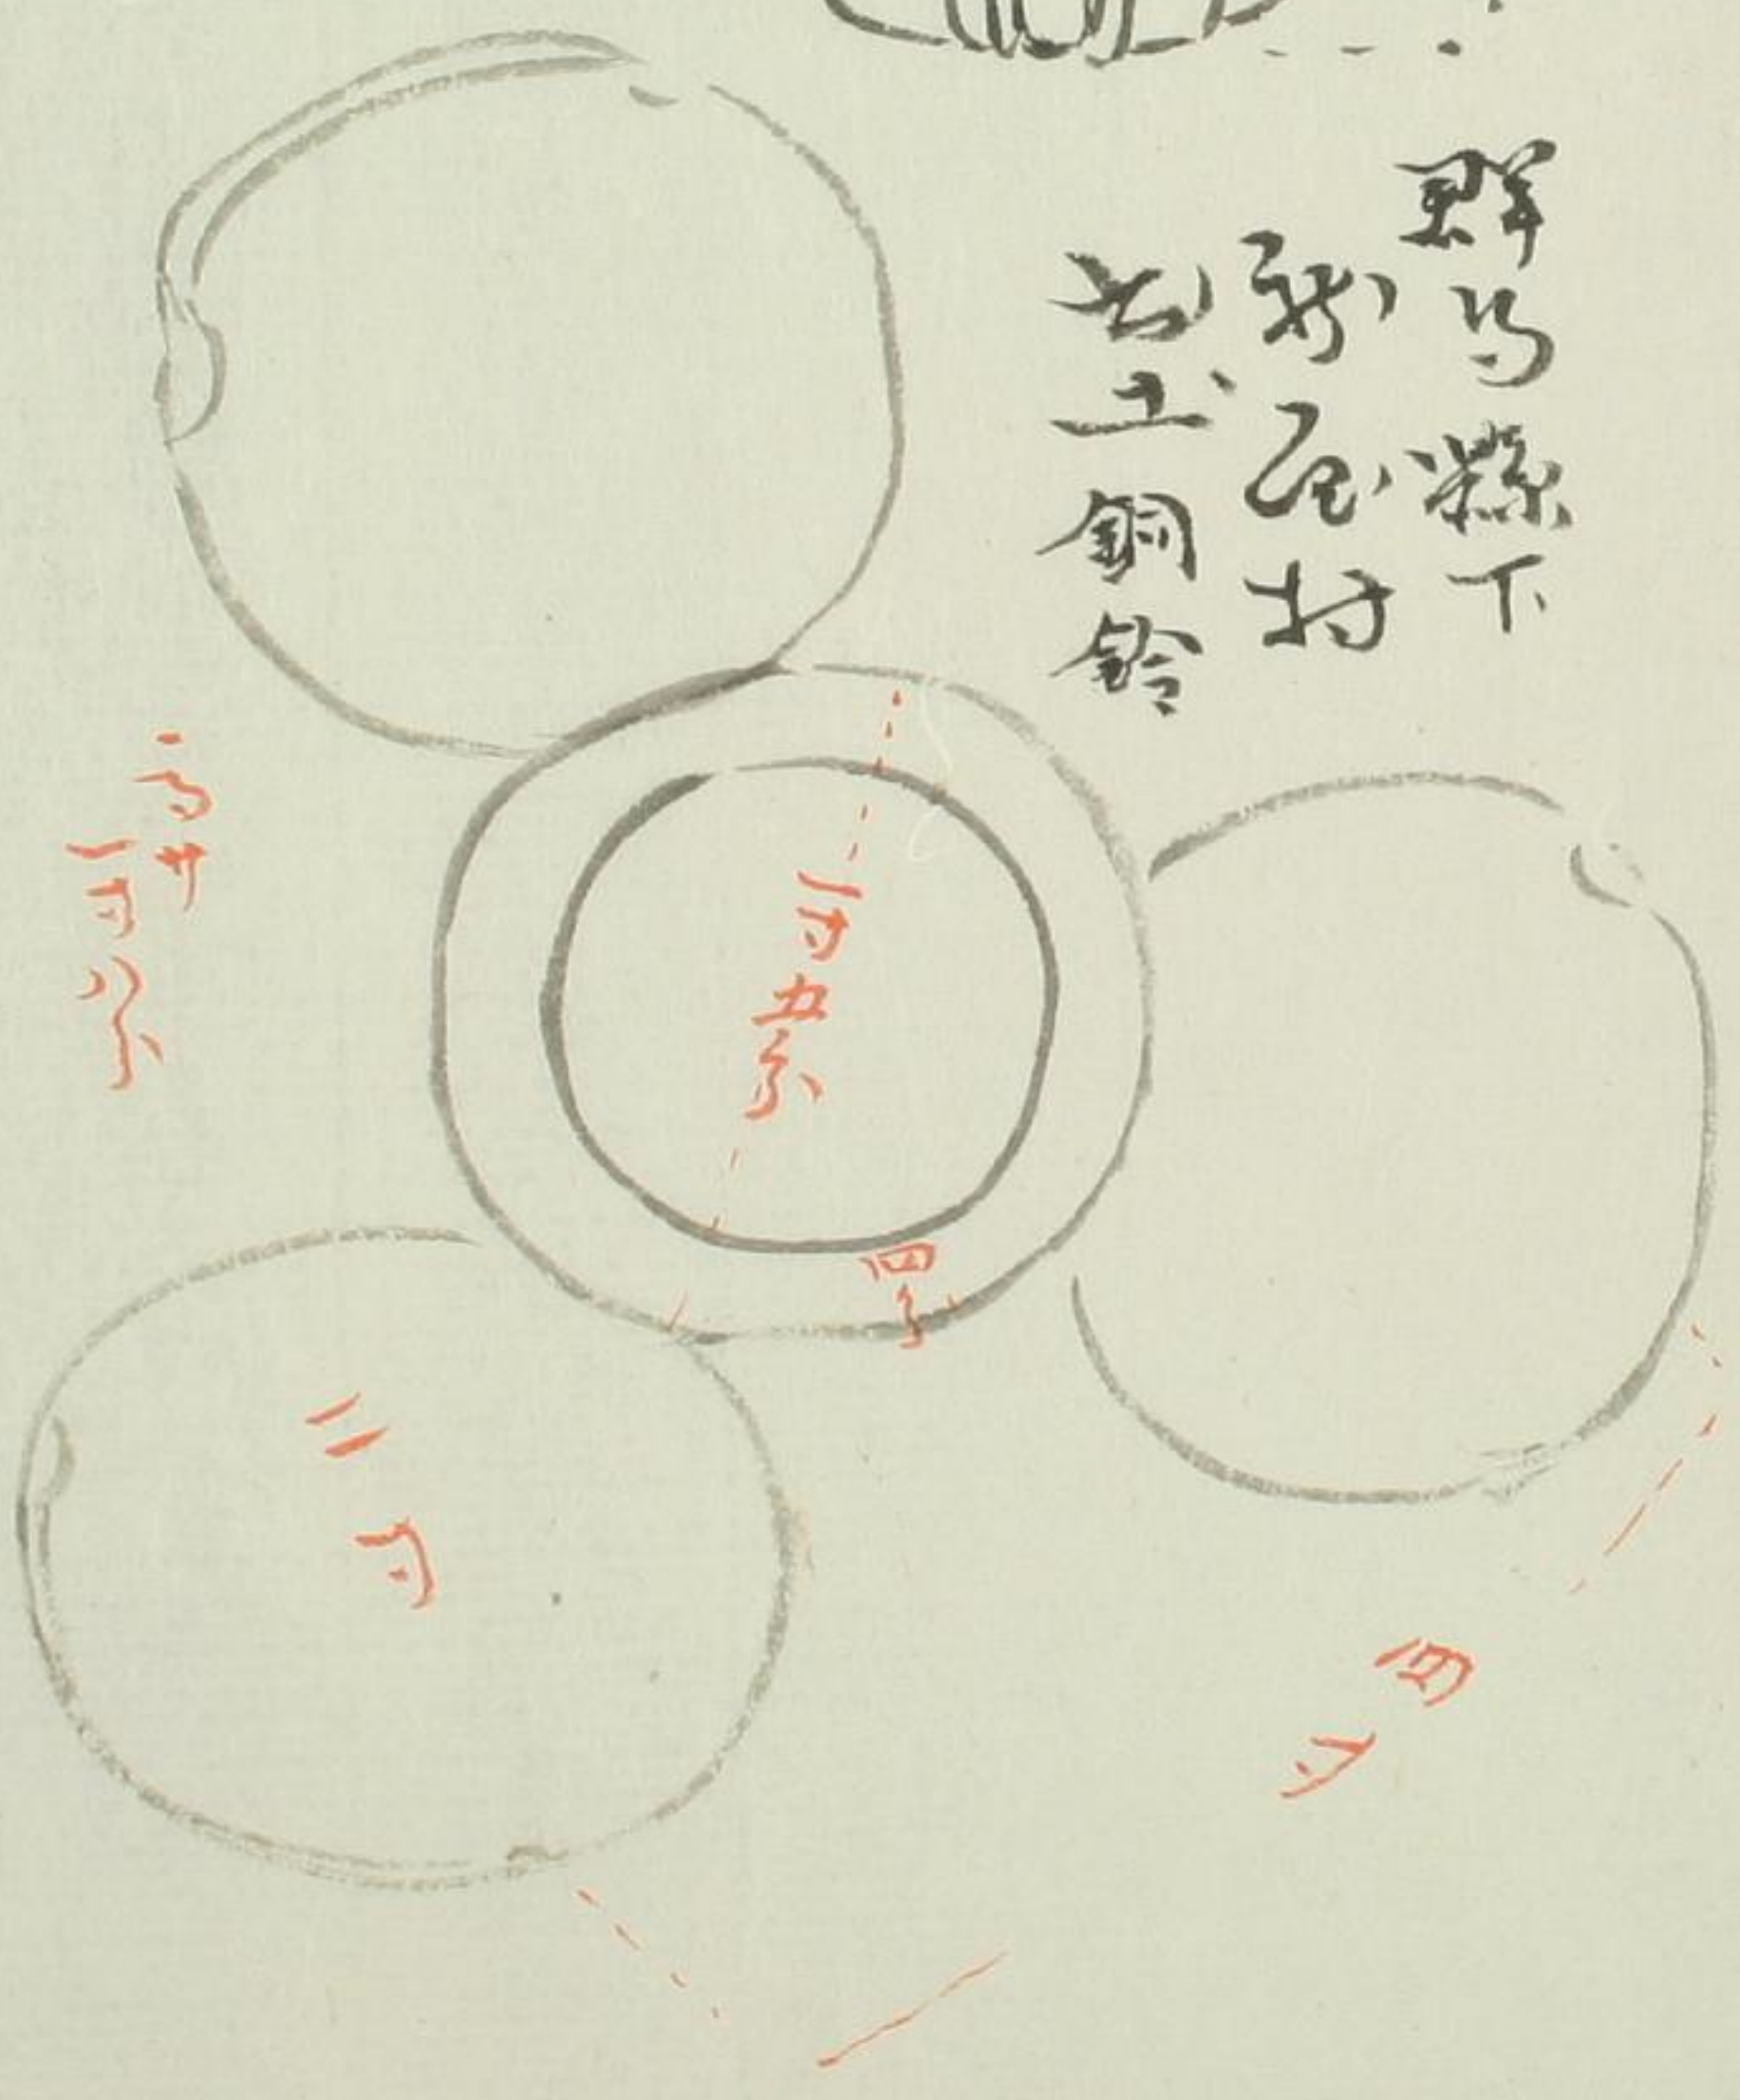 群馬縣下
新屋村
出土銅鈴
高サ
一寸八分
一寸五分
四分
二寸
四寸